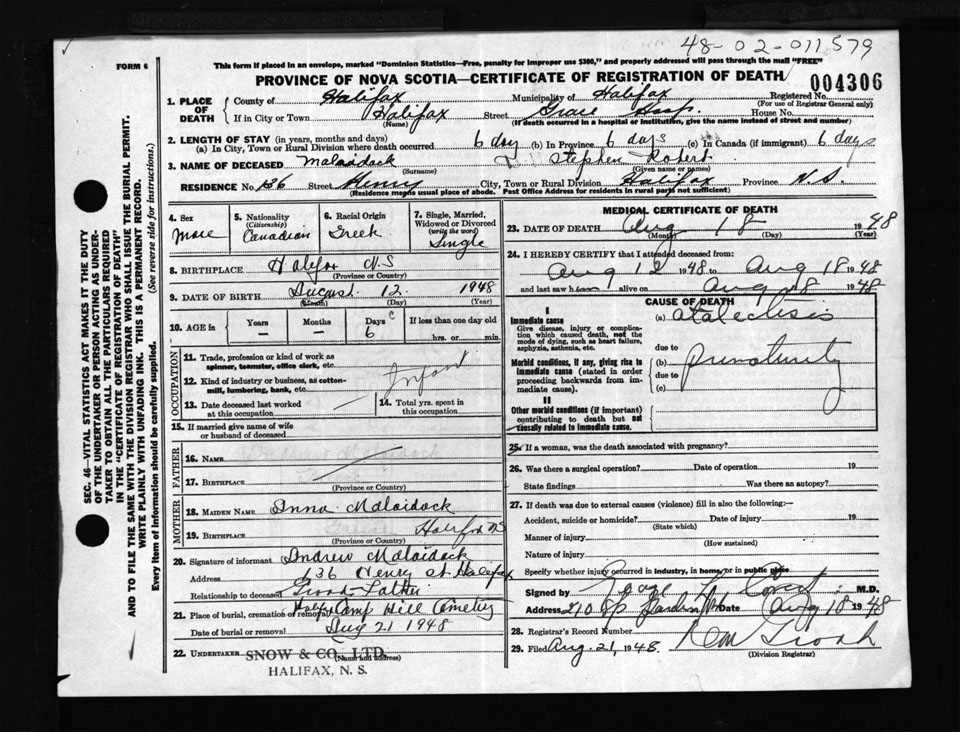 48-02-011579
FORM 6
This form if placed in an envelope, marked "Dominion Statistics—Free, penalty for improper use $300," and properly addressed will pass through the mail "FREE"
PROVINCE OF NOVA SCOTIA—CERTIFICATE OF REGISTRATION OF DEATH
004306
1. PLACE OF DEATH
County of Halifax Municipality of Halifax Registered No.
(For use of Registrar General only)
If in City or Town Halifax Street Grace Hosp. House No.
(Name) (If death occurred in a hospital or institution, give the name instead of street and number)
2. LENGTH OF STAY (in years, months and days)
(a) In City, Town or Rural Division where death occurred 6 day (b) In Province 6 days (c) In Canada (if immigrant) 6 days
3. NAME OF DECEASED Malaidack Stephen Robert
(Surname) (Given name or names)
RESIDENCE No. 136 Street Henry City, Town or Rural Division Halifax Province N.S.
(Residence means usual place of abode. Post Office Address for residents in rural parts not sufficient)
4. Sex
Male
5. Nationality
(Citizenship)
Canadian
6. Racial Origin
Greek
7. Single, Married,
Widowed or Divorced
(write the word)
Single
8. BIRTHPLACE Halifax N.S
(Province or Country)
9. DATE OF BIRTH August 12 1948
(Month) (Day) (Year)
10. AGE in
Years Months Days If less than one day old
— — 6 hrs. or min.
OCCUPATION
11. Trade, profession or kind of work as
spinner, teamster, office clerk, etc.
12. Kind of industry or business, as cotton-
mill, lumbering, bank, etc.
Infant
13. Date deceased last worked
at this occupation
14. Total yrs. spent in
this occupation
15. If married give name of wife
or husband of deceased
FATHER
16. NAME
17. BIRTHPLACE
(Province or Country)
MOTHER
18. MAIDEN NAME Anna Malaidack
19. BIRTHPLACE Halifax NS
(Province or Country)
20. Signature of informant Andrew Malaidack
Address 636 Henry st Halifax
Relationship to deceased Grand-father
21. Place of burial, cremation or removal Halifax Camp Hill Cemetery
Date of burial or removal Aug 21 1948
22. UNDERTAKER SNOW & CO., LTD.
(Name and address)
HALIFAX, N. S.
MEDICAL CERTIFICATE OF DEATH
23. DATE OF DEATH Aug 18 1948
(Month) (Day) (Year)
24. I HEREBY CERTIFY that I attended deceased from:
Aug 12 1948 to Aug 18 1948
and last saw h alive on Aug 18 1948
CAUSE OF DEATH
I
Immediate cause
Give disease, injury or complica-
tion which caused death, not the
mode of dying, such as heart failure,
asphyxia, asthenia, etc.
(a) Atalectisis
due to
Morbid conditions, if any, giving rise to
immediate cause (stated in order
proceeding backwards from im-
mediate cause).
(b) Prematurity
due to
(c)
II
Other morbid conditions (if important)
contributing to death but not
causally related to immediate cause.
25. If a woman, was the death associated with pregnancy?
26. Was there a surgical operation? Date of operation 19
State findings Was there an autopsy?
27. If death was due to external causes (violence) fill in also the following:—
Accident, suicide or homicide? Date of injury 19
(State which)
Manner of injury
(How sustained)
Nature of injury
Specify whether injury occurred in industry, in home, or in public place
Signed by M.D.
Address Date Aug 18 1948
28. Registrar's Record Number
29. Filed Aug. 21, 1948
(Division Registrar)
SEC. 46—VITAL STATISTICS ACT MAKES IT THE DUTY
OF THE UNDERTAKER OR PERSON ACTING AS UNDER-
TAKER TO OBTAIN ALL THE PARTICULARS REQUIRED
IN THE "CERTIFICATE OF REGISTRATION OF DEATH"
AND TO FILE THE SAME WITH THE DIVISION REGISTRAR WHO SHALL ISSUE THE BURIAL PERMIT.
WRITE PLAINLY WITH UNFADING INK. THIS IS A PERMANENT RECORD.
Every item of information should be carefully supplied. (See reverse side for instructions.)